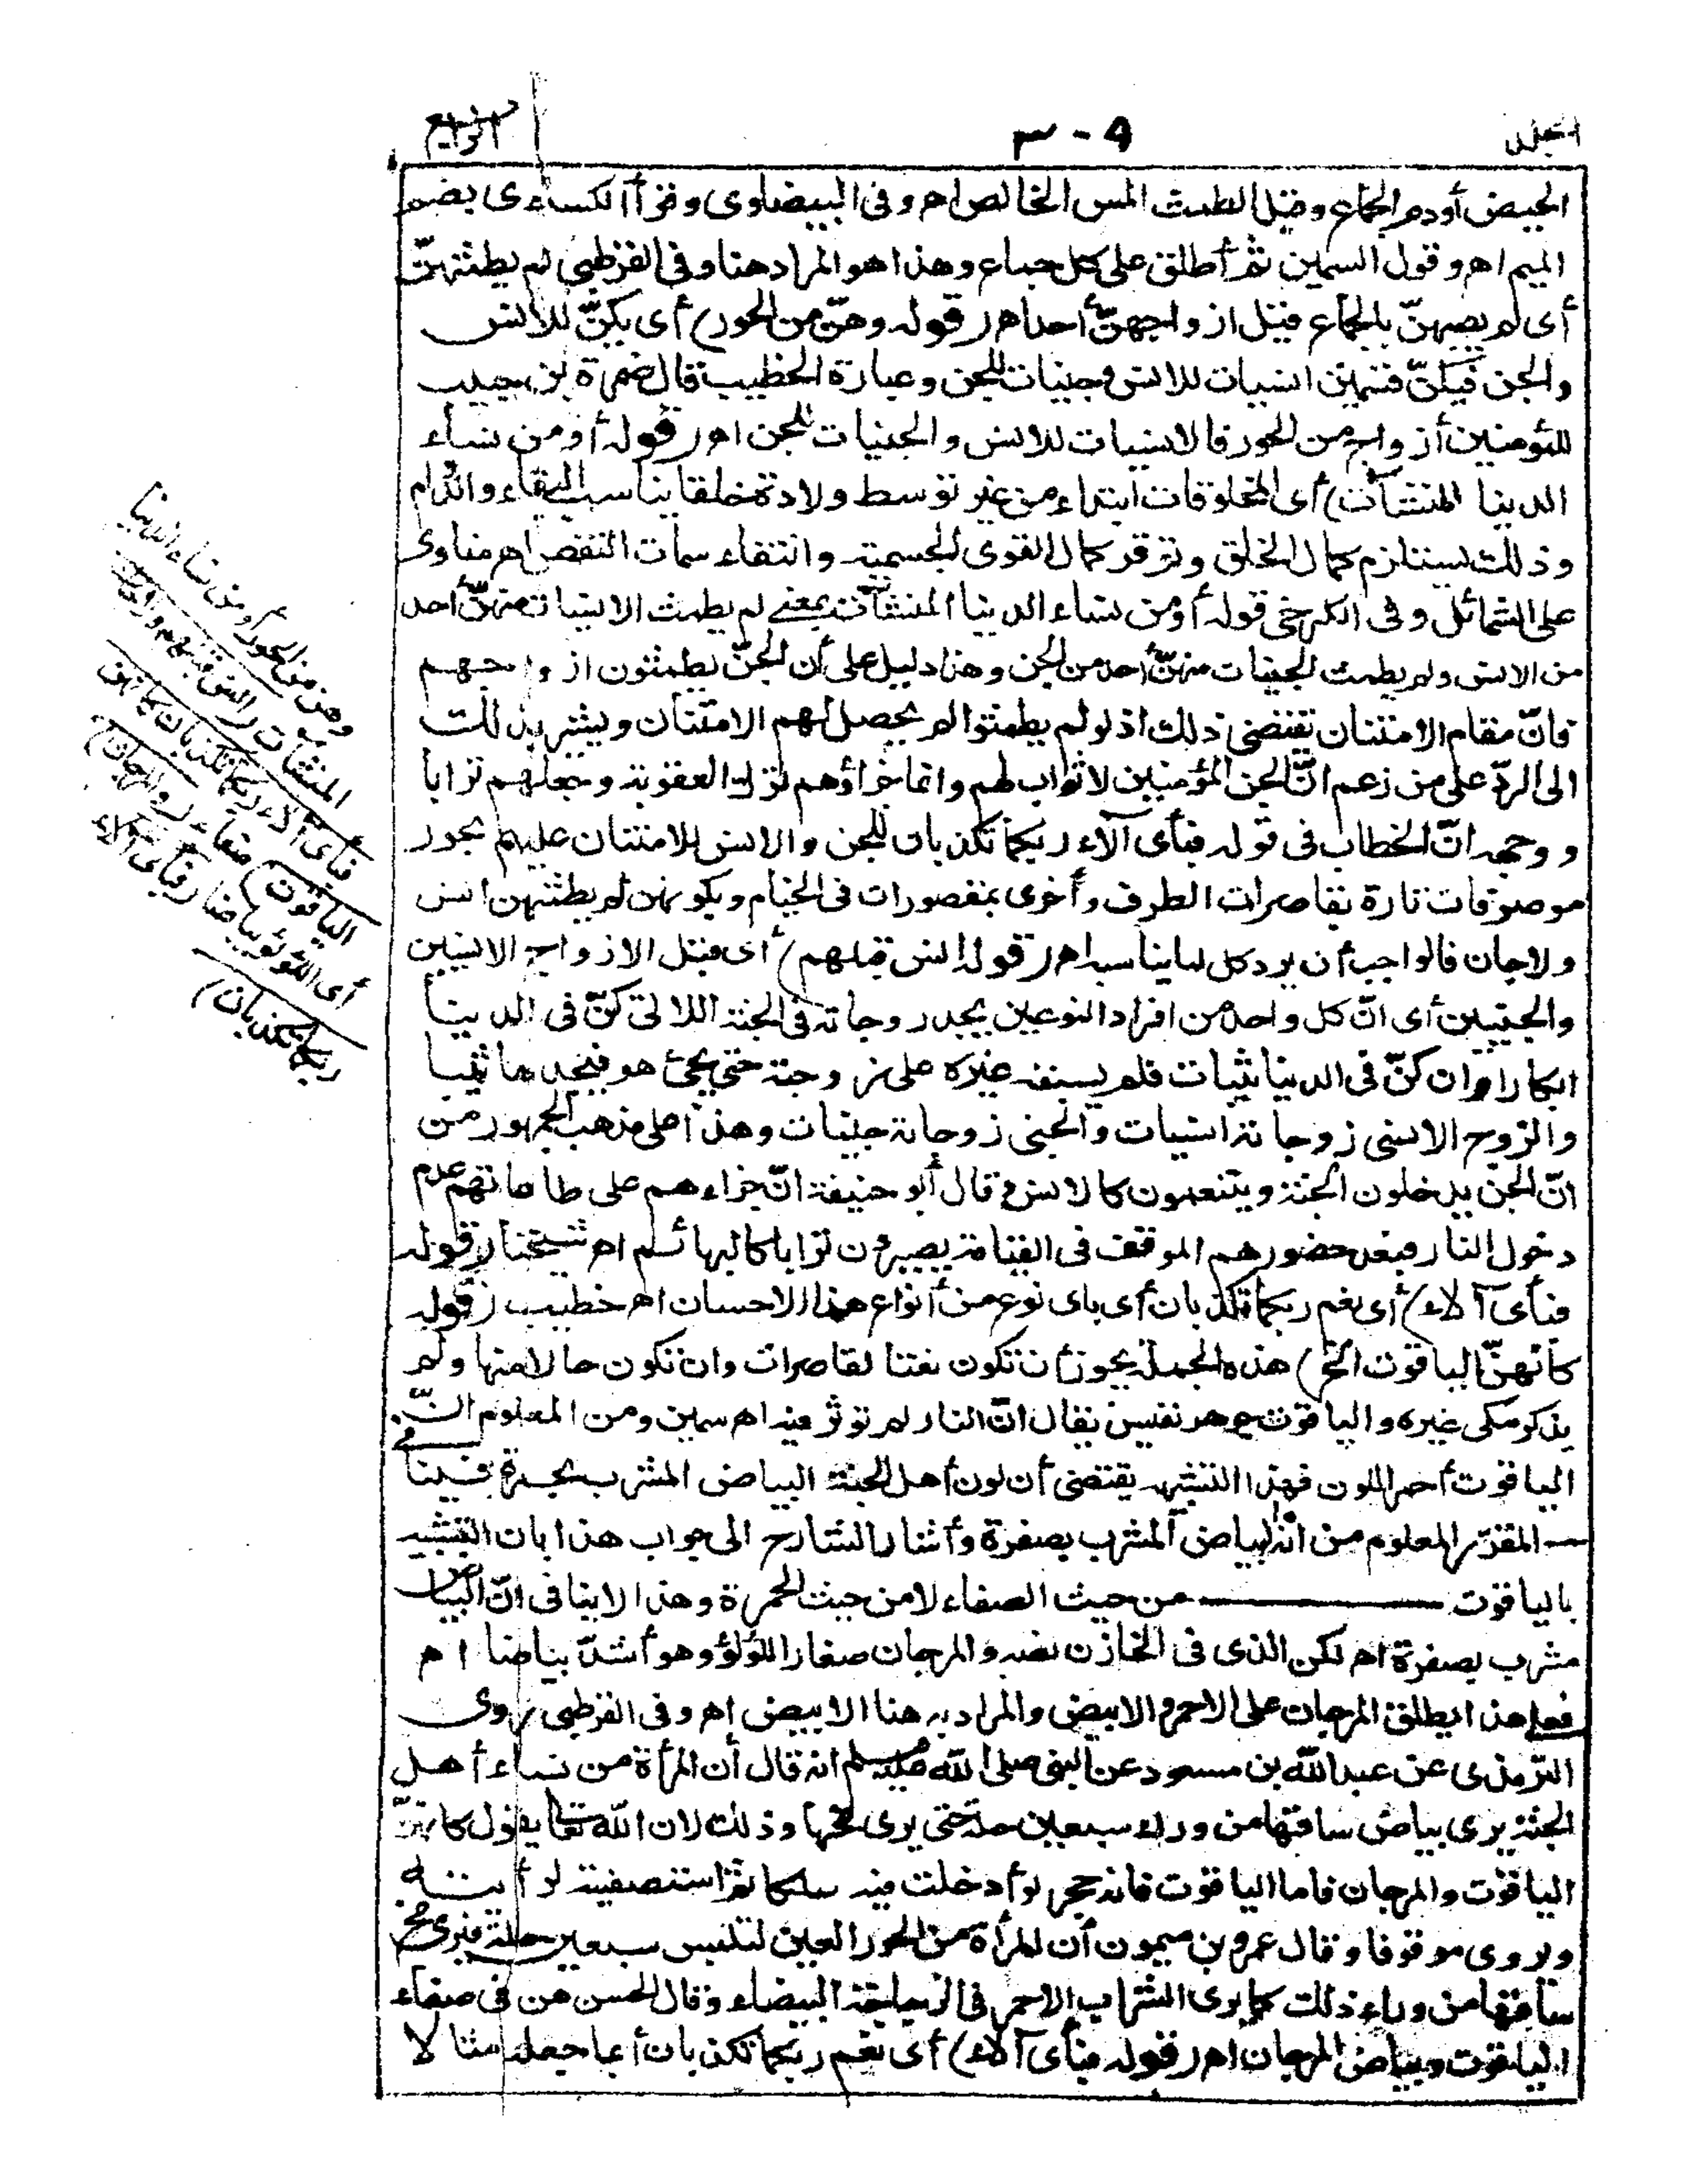 الجمل
٣٠٩
الرابع
الحيض أو دم الجماع وقيل الطمث المس الخالص اه وفى البيضاوى وقرأ الكسائى بضم
الميم اه وقول السمين ثم أطلق على كل جماع وهذا هو المراد هنا وفى القرطبى لم يطمثهنّ
أى لم يصبهنّ بالجماع قبل ازواجهنّ أحد اه (قوله وهنّ من الحور) أى يكنّ للانس
والجن فيكنّ قسمين انسيات للانس وجنيات للجن وعبارة الخطيب قال ضمرة بن حبيب
للمؤمنين أزواج من الحور فالانسيات للانس والجنيات للجن اه (قوله أو من نساء
الدنيا المنشآت) أى المخلوقات ابتداء من غير توسط ولادة خلقا يناسب البقاء والدوام
وذلك يستلزم كمال الخلق وتوفر كمال القوى الجسمية وانتفاء سمات النقص اه مناوى
على الشمائل وفى الكرخى قوله أو من نساء الدنيا المنشآت بمعنى لم يطمث الانسيات منهنّ أحد
من الانس ولم يطمث الجنيات منهنّ أحد من الجن وهذا دليل على أن الجنّ يطمثون ازواجهم
فانّ مقام الامتنان يقتضى ذلك اذ لو لم يطمثوا لم يحصل لهم الامتنان ويشير بذلك
الى الردّ على من زعم انّ الجن المؤمنين لا ثواب لهم وانما جزاؤهم ترك العقوبة وجعلهم ترابا
ووجهه انّ الخطاب فى قوله فبأى آلاء ربكما تكذبان للجن والانس للامتنان عليهم بحور
موصوفات تارة بقاصرات الطرف وأخرى بمقصورات فى الخيام وبكونهن لم يطمثهن انس
ولا جان فالواجب أن يرد كل لما يناسبه اه (قوله انس قبلهم) أى قبل الازواج الانسيين
والجنيين أى انّ كل واحد من افراد النوعين يجد زوجاته فى الجنة اللاتى كنّ فى الدنيا
ابكارا وان كنّ فى الدنيا ثيبات فلم يسبقه غيره على زوجته حتى يجئ هو فيجدها ثيبا
والزوج الانسى زوجاته انسيات والجنى زوجاته جنيات وهذا على مذهب الجمهور من
انّ الجن يدخلون الجنة ويتنعمون كالانس وقال أبو حنيفة انّ جزاءهم على طاعاتهم عدم
دخول النار فبعد حضورهم الموقف فى القيامة يصيرون ترابا كالبهائم اه شيخنا (قوله
فبأى آلاء) أى نعم ربكما تكذبان أى بأى نوع من أنواع هذا الاحسان اه خطيب (قوله
كأنهنّ الياقوت الخ) هذه الجملة يجوز أن تكون نعتا لقاصرات وان تكون حالا منها ولم
يذكر مكى غيره والياقوت جوهر نفيس يقال انّ النار لم تؤثر فيه اه سمين ومن المعلوم انّ
الياقوت أحمر اللون فهذا التشبيه يقتضى أن لون أهل الجنة البياض المشرب بحمرة فينافى
المقرّر المعلوم من انه البياض المشرب بصفرة وأشار الشارح الى جواب هذا بان التشبيه
بالياقوت من حيث الصفاء لا من حيث الحمرة وهذا لا ينافى انّ البياض
مشرب بصفرة اه لكن الذى فى الخازن نصه والمرجان صغار اللؤلؤ وهو أشدّ بياضا اه
فعلى هذا يطلق المرجان على الاحمر والابيض والمراد به هنا الابيض اه وفى القرطبى روى
الترمذى عن عبد الله بن مسعود عن النبى صلى الله عليه وسلم انه قال أن المرأة من نساء أهل
الجنة يرى بياض ساقها من وراء سبعين حلة حتى يرى مخها وذلك لان الله تعالى يقول كانهنّ
الياقوت والمرجان فاما الياقوت فانه حجر لو أدخلت فيه سلكا ثم استصفيته لرأيته
ويروى موقوفا وقال عمرو بن ميمون أن المرأة من الحور العين لتلبس سبعين حلة فيرى مخ
ساقها من وراء ذلك كما يرى الشراب الاحمر فى الزجاجة البيضاء وقال الحسن هن فى صفاء
الياقوت وبياض المرجان اه (قوله فبأى آلاء) أى نعم ربكما تكذبان أبما جعله مثالا
وهن من الحور أو من نساء الدنيا
المنشآت (انس قبلهم ولا جان
فبأى آلاء ربكما تكذبان كأنهن
الياقوت) صفاء (والمرجان)
أى اللؤلؤ بياضا (فبأى آلاء
ربكما تكذبان)